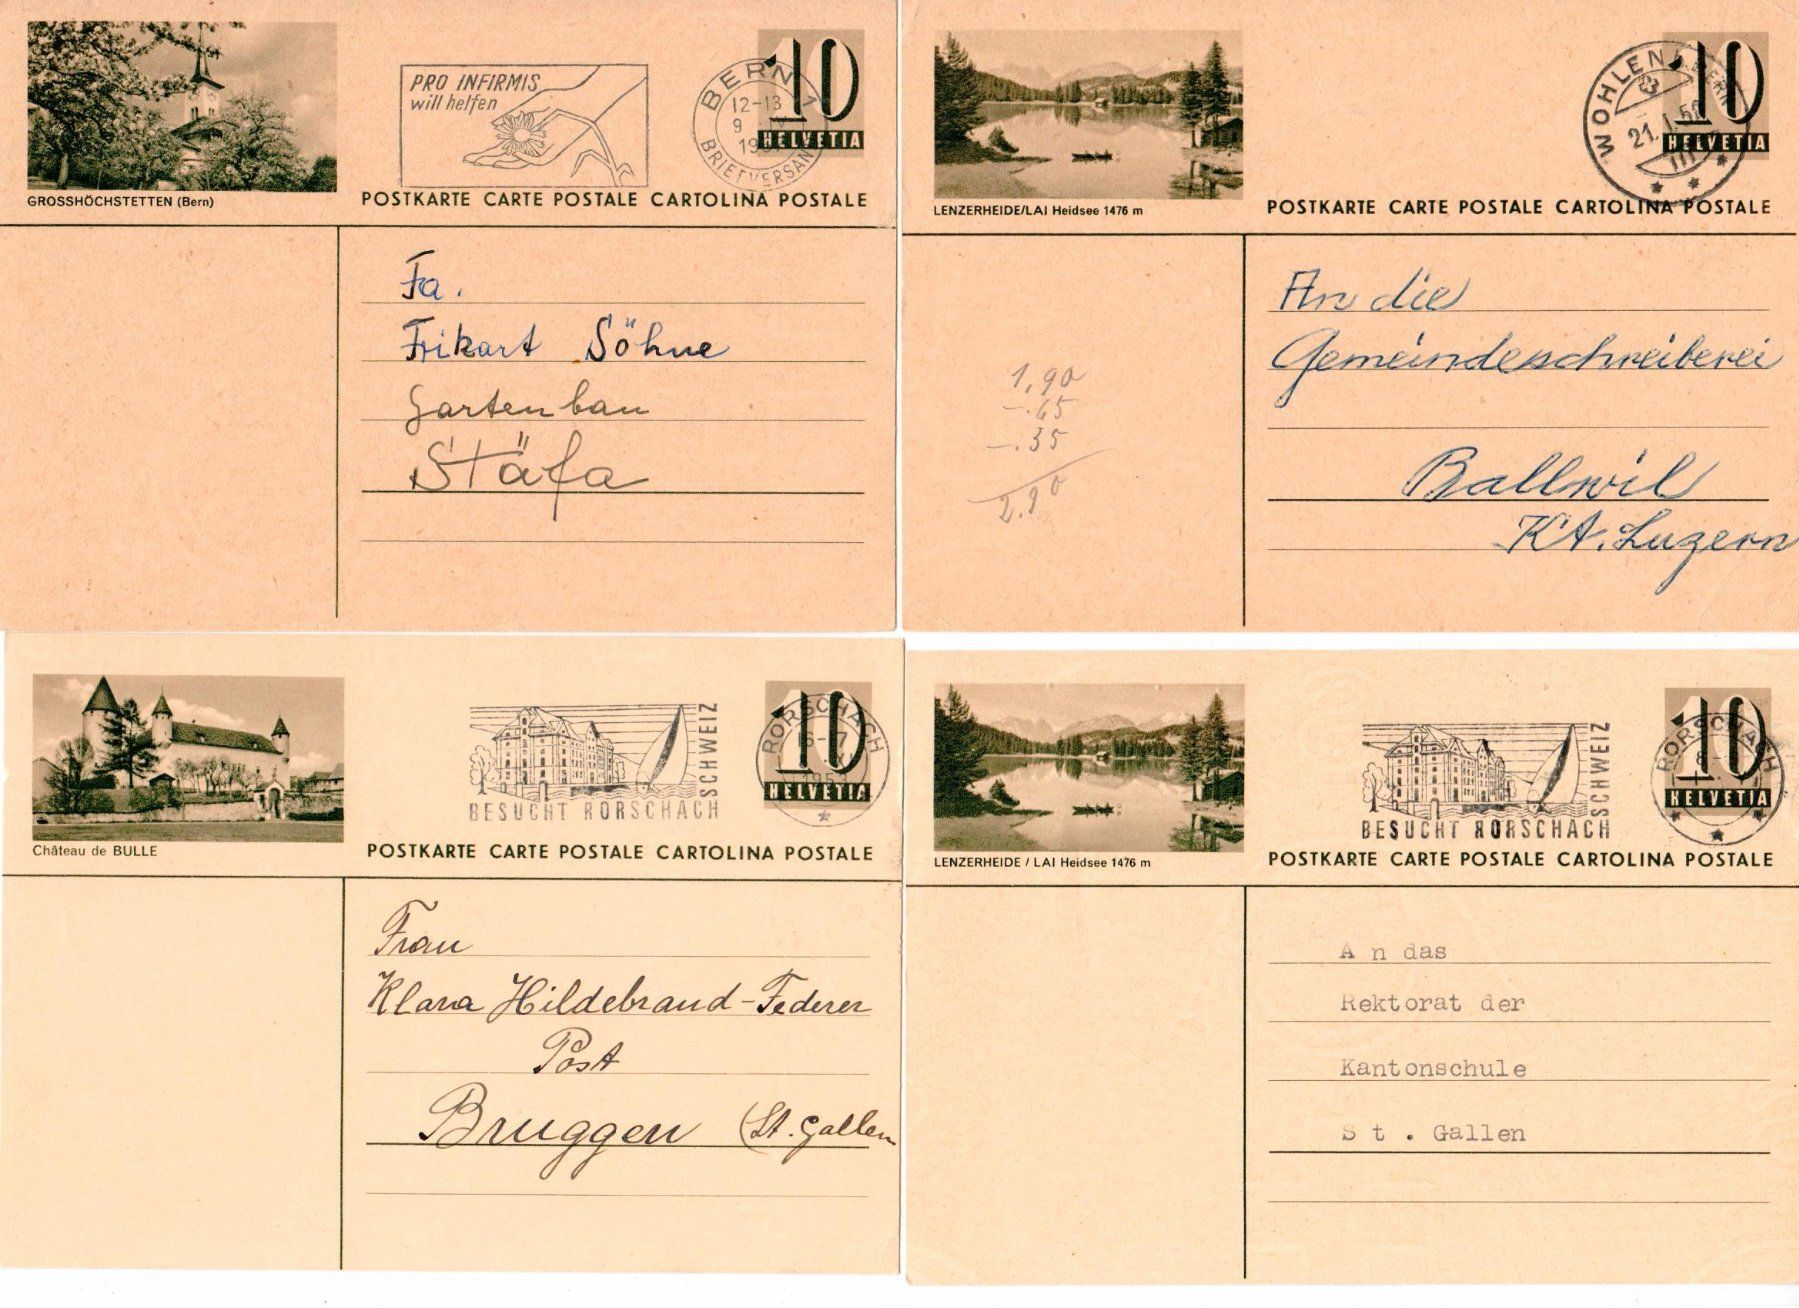 GROSSHÖCHSTETTEN (Bern)
PRO INFIRMIS
will helfen
BERN 1
12-13
9
BRIEFVERSAND
10
HELVETIA
POSTKARTE CARTE POSTALE CARTOLINA POSTALE
Fa.
Frikart Söhne
Gartenbau
Stäfa
LENZERHEIDE/LAI Heidsee 1476 m
WOHLEN
21. I. 5
10
HELVETIA
POSTKARTE CARTE POSTALE CARTOLINA POSTALE
1,90
-.65
-.35
2.90
An die
Gemeindeschreiberei
Ballwil
Kt. Luzern
Château de BULLE
BESUCHT RORSCHACH
SCHWEIZ
RORSCHACH
10
HELVETIA
POSTKARTE CARTE POSTALE CARTOLINA POSTALE
Frau
Klara Hildebrand-Federer
Post
Bruggen (St. Gallen
LENZERHEIDE / LAI Heidsee 1476 m
BESUCHT RORSCHACH
SCHWEIZ
RORSCHACH
10
HELVETIA
POSTKARTE CARTE POSTALE CARTOLINA POSTALE
A n das
Rektorat der
Kantonschule
S t . Gallen